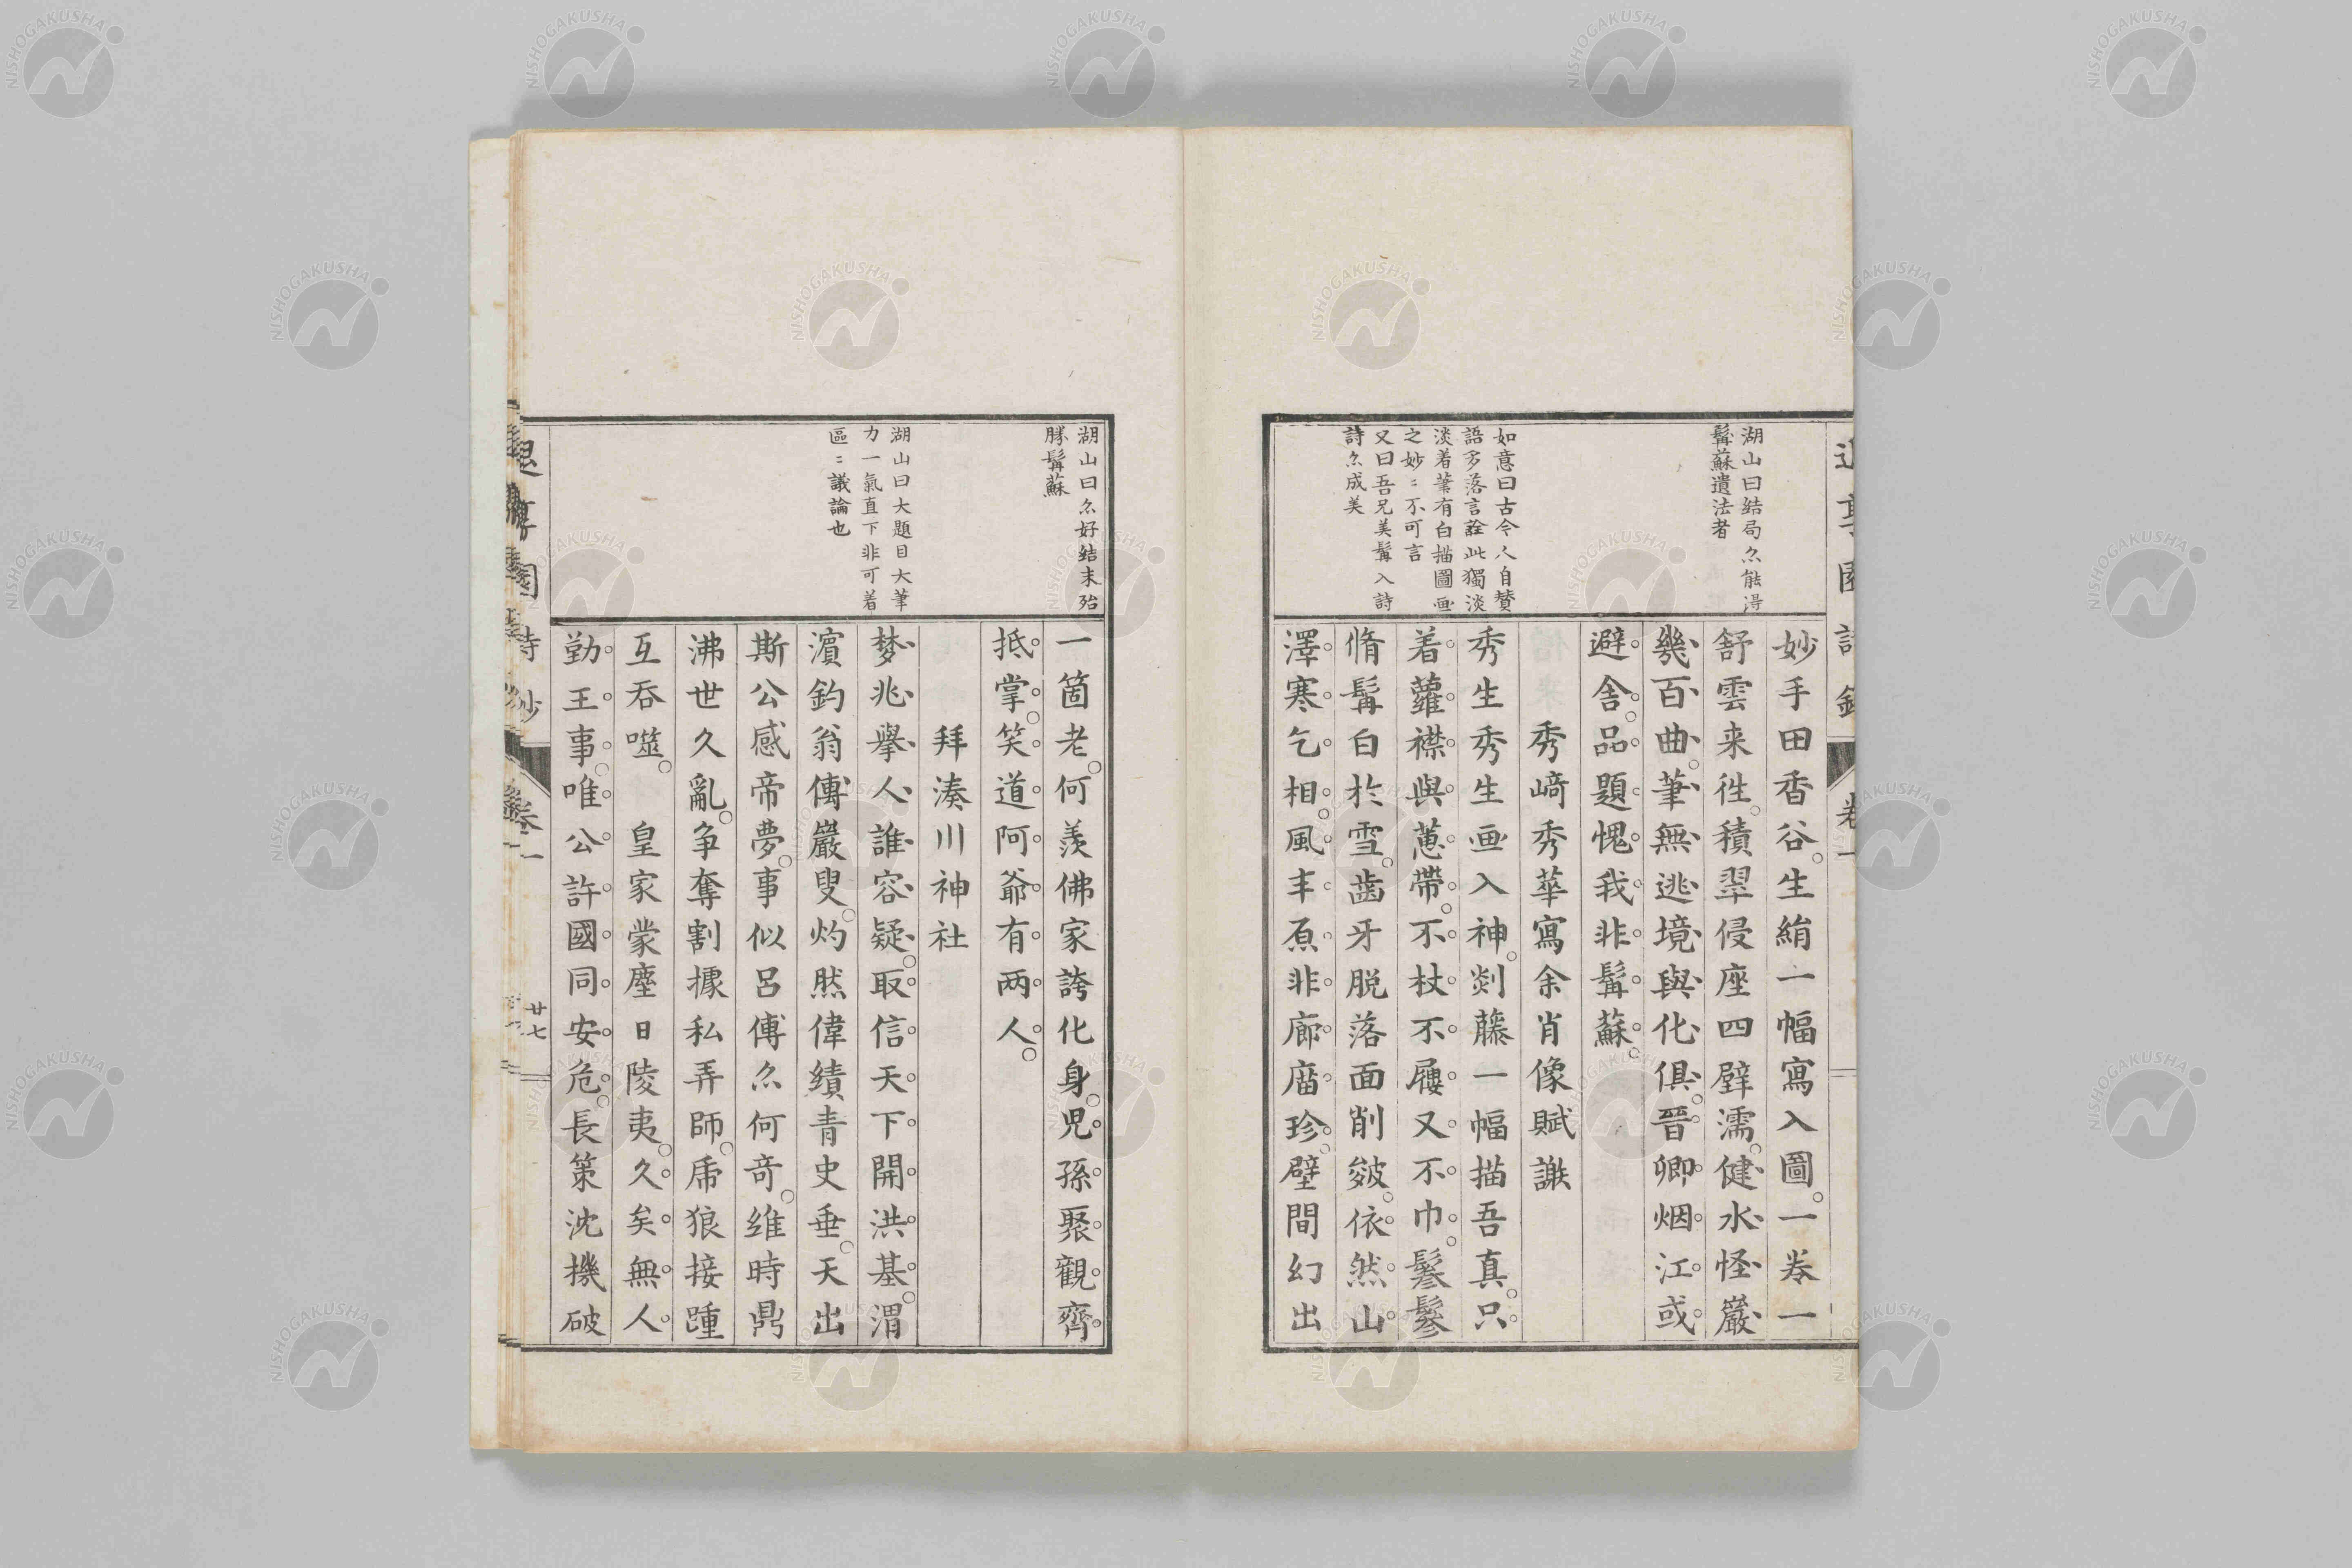 湖山曰結局亦能得
髯蘇遺法者
如意曰古今人自贊
語多落言詮此獨淡
淡着筆有白描圖画
之妙〻不可言
又曰吾兄美髯入詩
詩亦成美
妙手田香谷。生絹一幅寫入圖。一卷一
舒雲来往。積翠侵座四壁濡。健水怪巖
幾百曲。筆無逃境與化俱。晉卿烟江或
避舍。品題愧我非髯蘇。
秀﨑秀華寫余肖像賦謝
秀生秀生画入神。剡藤一幅描吾真。只
着蘿襟與蕙帶。不杖不屨又不巾。鬖鬖
脩髯白於雪。齒牙脱落面削皴。依然山
澤寒乞相。風丰原非廊廟珍。壁間幻出
湖山曰亦好結末殆
勝髯蘇
湖山曰大題目大筆
力一氣直下非可着
區〻議論也
一箇老。何羨佛家誇化身。児孫聚觀齊
抵掌。笑道阿爺有两人。
拜湊川神社
梦兆擧人誰容疑。取信天下開洪基。渭
濵釣翁傅巖叟。灼然偉績青史垂。天出
斯公感帝夢。事似呂傅亦何竒。維時鼎
沸世久亂。争奪割據私弄師。乕狼接踵
互吞噬。皇家蒙塵日陵夷。久矣無人
勤王事。唯公許國同安危。長策沈機破
卷一
廿七